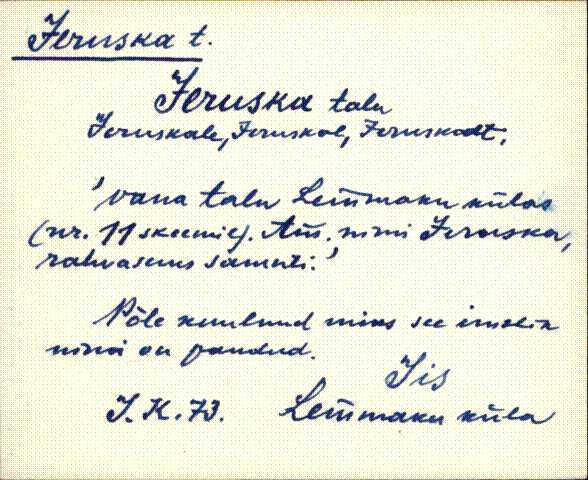 Jeruska t.
Jeruska talu
Jeruskale, Jeruskal, Jeruskadt.
'vana talu Lemmaku külas
(nr. 11 skeemil). Am. nimi Jeruska,
rahvasuus samuti.'
Põle kuulnud miks see imelik
nimi on pandud.
Iis
J. K. 73. Lemmaku küla